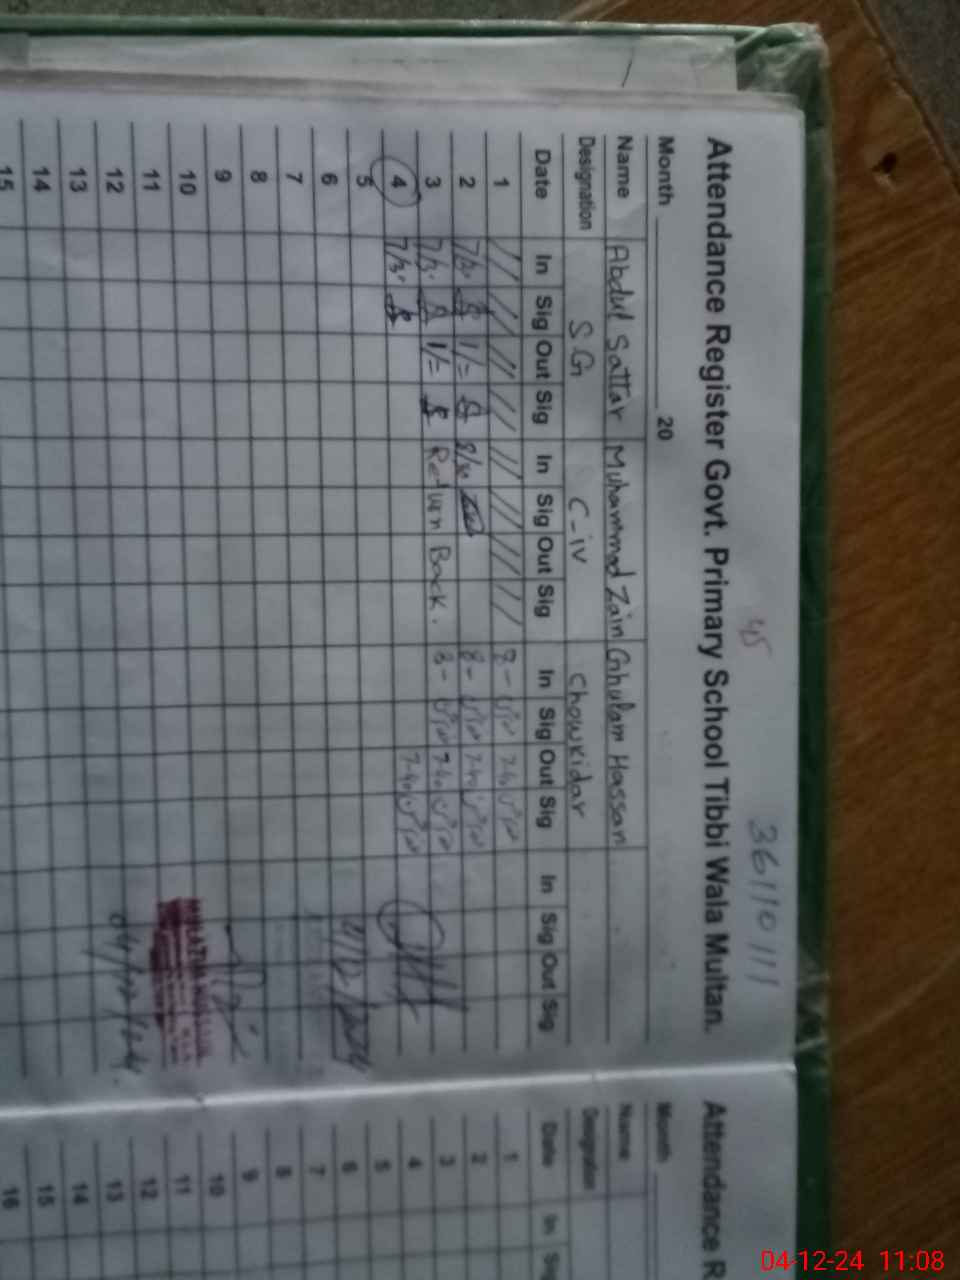 45
36110111
Attendance Register Govt. Primary School Tibbi Wala Multan.
Month 20
Name Abdul Sattar Muhammad Zain Ghulam Hassan
Designation SG C-iv Chowkidar
Date In Sig Out Sig In Sig Out Sig In Sig Out Sig In Sig Out Sig
1 8- 7-40
2 7/30 1/= 8/30 8- 7-40
3 7/30 1/= Return Back. 8- 7-40
4 7/30 7-40
5
6
7
8
9
10
11
12 04/12/24
13
14
15
Attendance R
Month
Name
Designation
Date In Sig
1
2
3
4
5
6
7
8
9
10
11
12
13
14
15
16
04-12-24 11:08